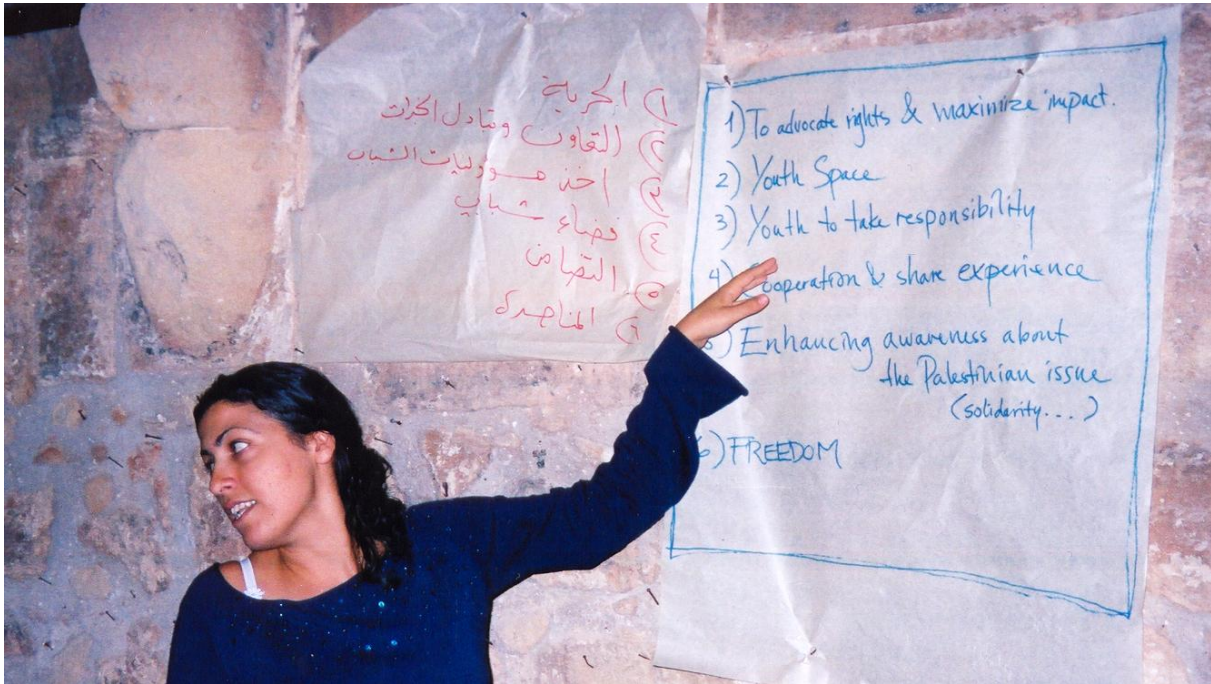 ١) الحرية
٢) التعاون وتبادل الخبرات
٣) اخذ مسؤوليات الشباب
٤) فضاء شبابي
٥) التضامن
٦) المناصرة
1) To advocate rights & maximize impact.
2) Youth Space
3) Youth to take responsibility
4) Cooperation & share experience
5) Enhancing awareness about
the Palestinian issue
(solidarity...)
6) FREEDOM